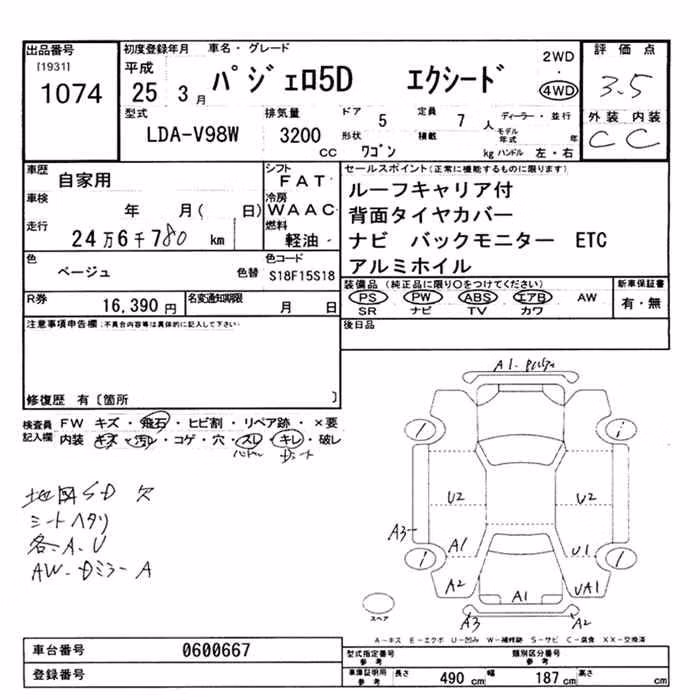 出品番号
[1931]
1074
初度登録年月
車名・グレード
平成
25 3月
パジェロ5D エクシード
2WD
・
4WD
評価点
3.5
外装 内装
C C
型式
LDA-V98W
排気量
3200
CC
ドア
5
定員
7 人
形状
ワゴン
積載
kg
ディーラー・並行
モデル年式 年
ハンドル 左・右
車歴
自家用
車検
年 月( 日)
走行
24万6千780 km
シフト
FAT
冷房
WAAC
燃料
軽油
セールスポイント(正常に機能するものに限ります)
ルーフキャリア付
背面タイヤカバー
ナビ バックモニター ETC
アルミホイル
色
ベージュ
色替
色コード
S18F15S18
R券
16,390 円
名変通知期限
月 日
装備品(純正品に限り○をつけてください)
PS PW ABS エアB AW
SR ナビ TV カワ
新車保証書
有・無
後日品
注意事項申告欄(不具合内容等は具体的に記入して下さい)
修復歴 有〔箇所 〕
検査員記入欄
FW キズ・飛石・ヒビ割・リペア跡・×要
内装 キズ・汚レ・コゲ・穴・スレ・キレ・破レ
ハンドル
地図SD 欠
シートヘタリ
各.A.U
AW-Dミラー A
A1
U2
U2
A3
A1
U1
A2
UA1
A1
A3
A2
スペア
A-キズ E-エクボ U-凹み W-補修跡 S-サビ C-腐食 XX-交換済
車台番号
0600667
登録番号
型式指定番号
参考
類別区分番号
参考
車庫証明用
参考
長さ
490 cm
幅
187 cm
高さ
cm